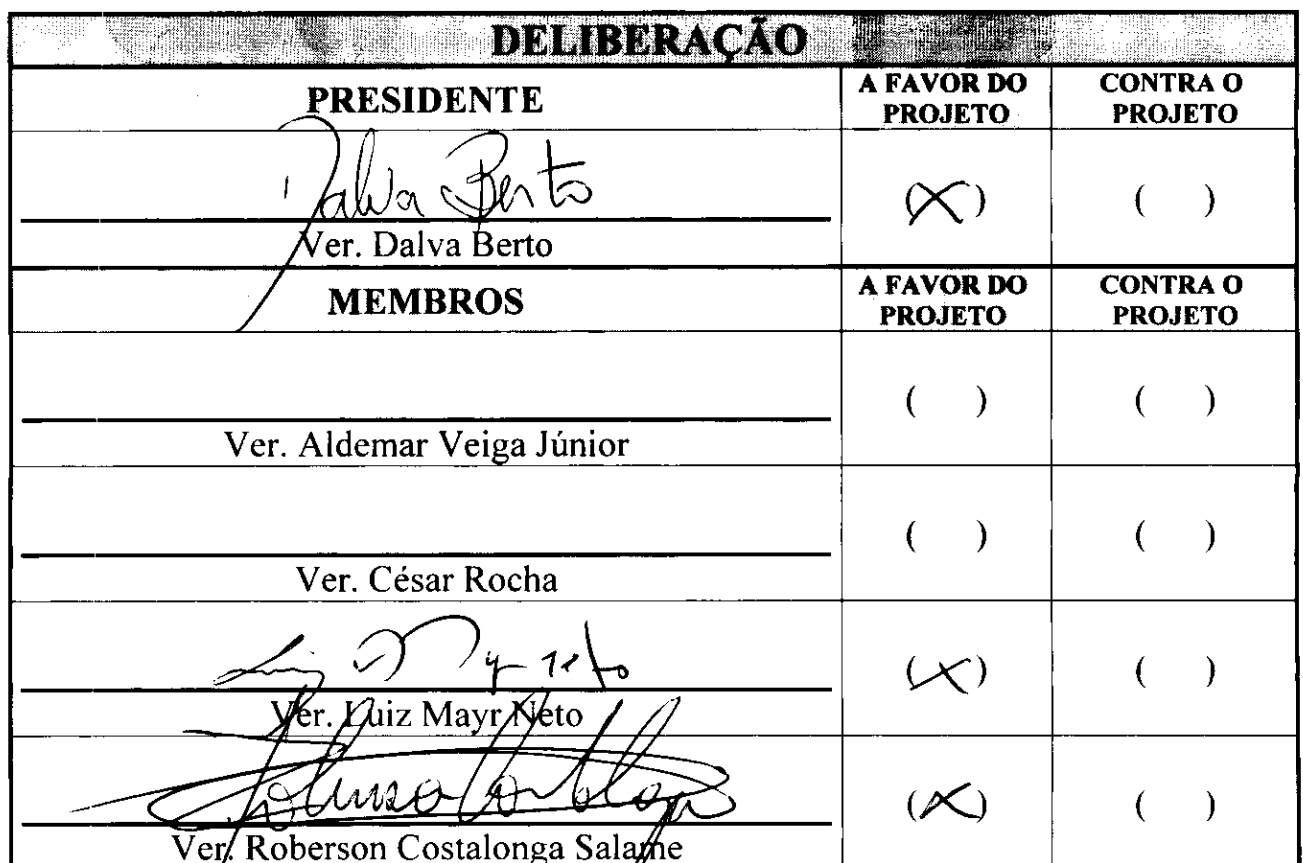 DELIBERAÇÃO
PRESIDENTE
A FAVOR DO
PROJETO
CONTRA O
PROJETO
Dalva Berto
(X)
( )
Ver. Dalva Berto
MEMBROS
A FAVOR DO
PROJETO
CONTRA O
PROJETO
( )
( )
Ver. Aldemar Veiga Júnior
( )
( )
Ver. César Rocha
(X)
( )
Ver. Luiz Mayr Neto
(X)
( )
Ver. Roberson Costalonga Salame